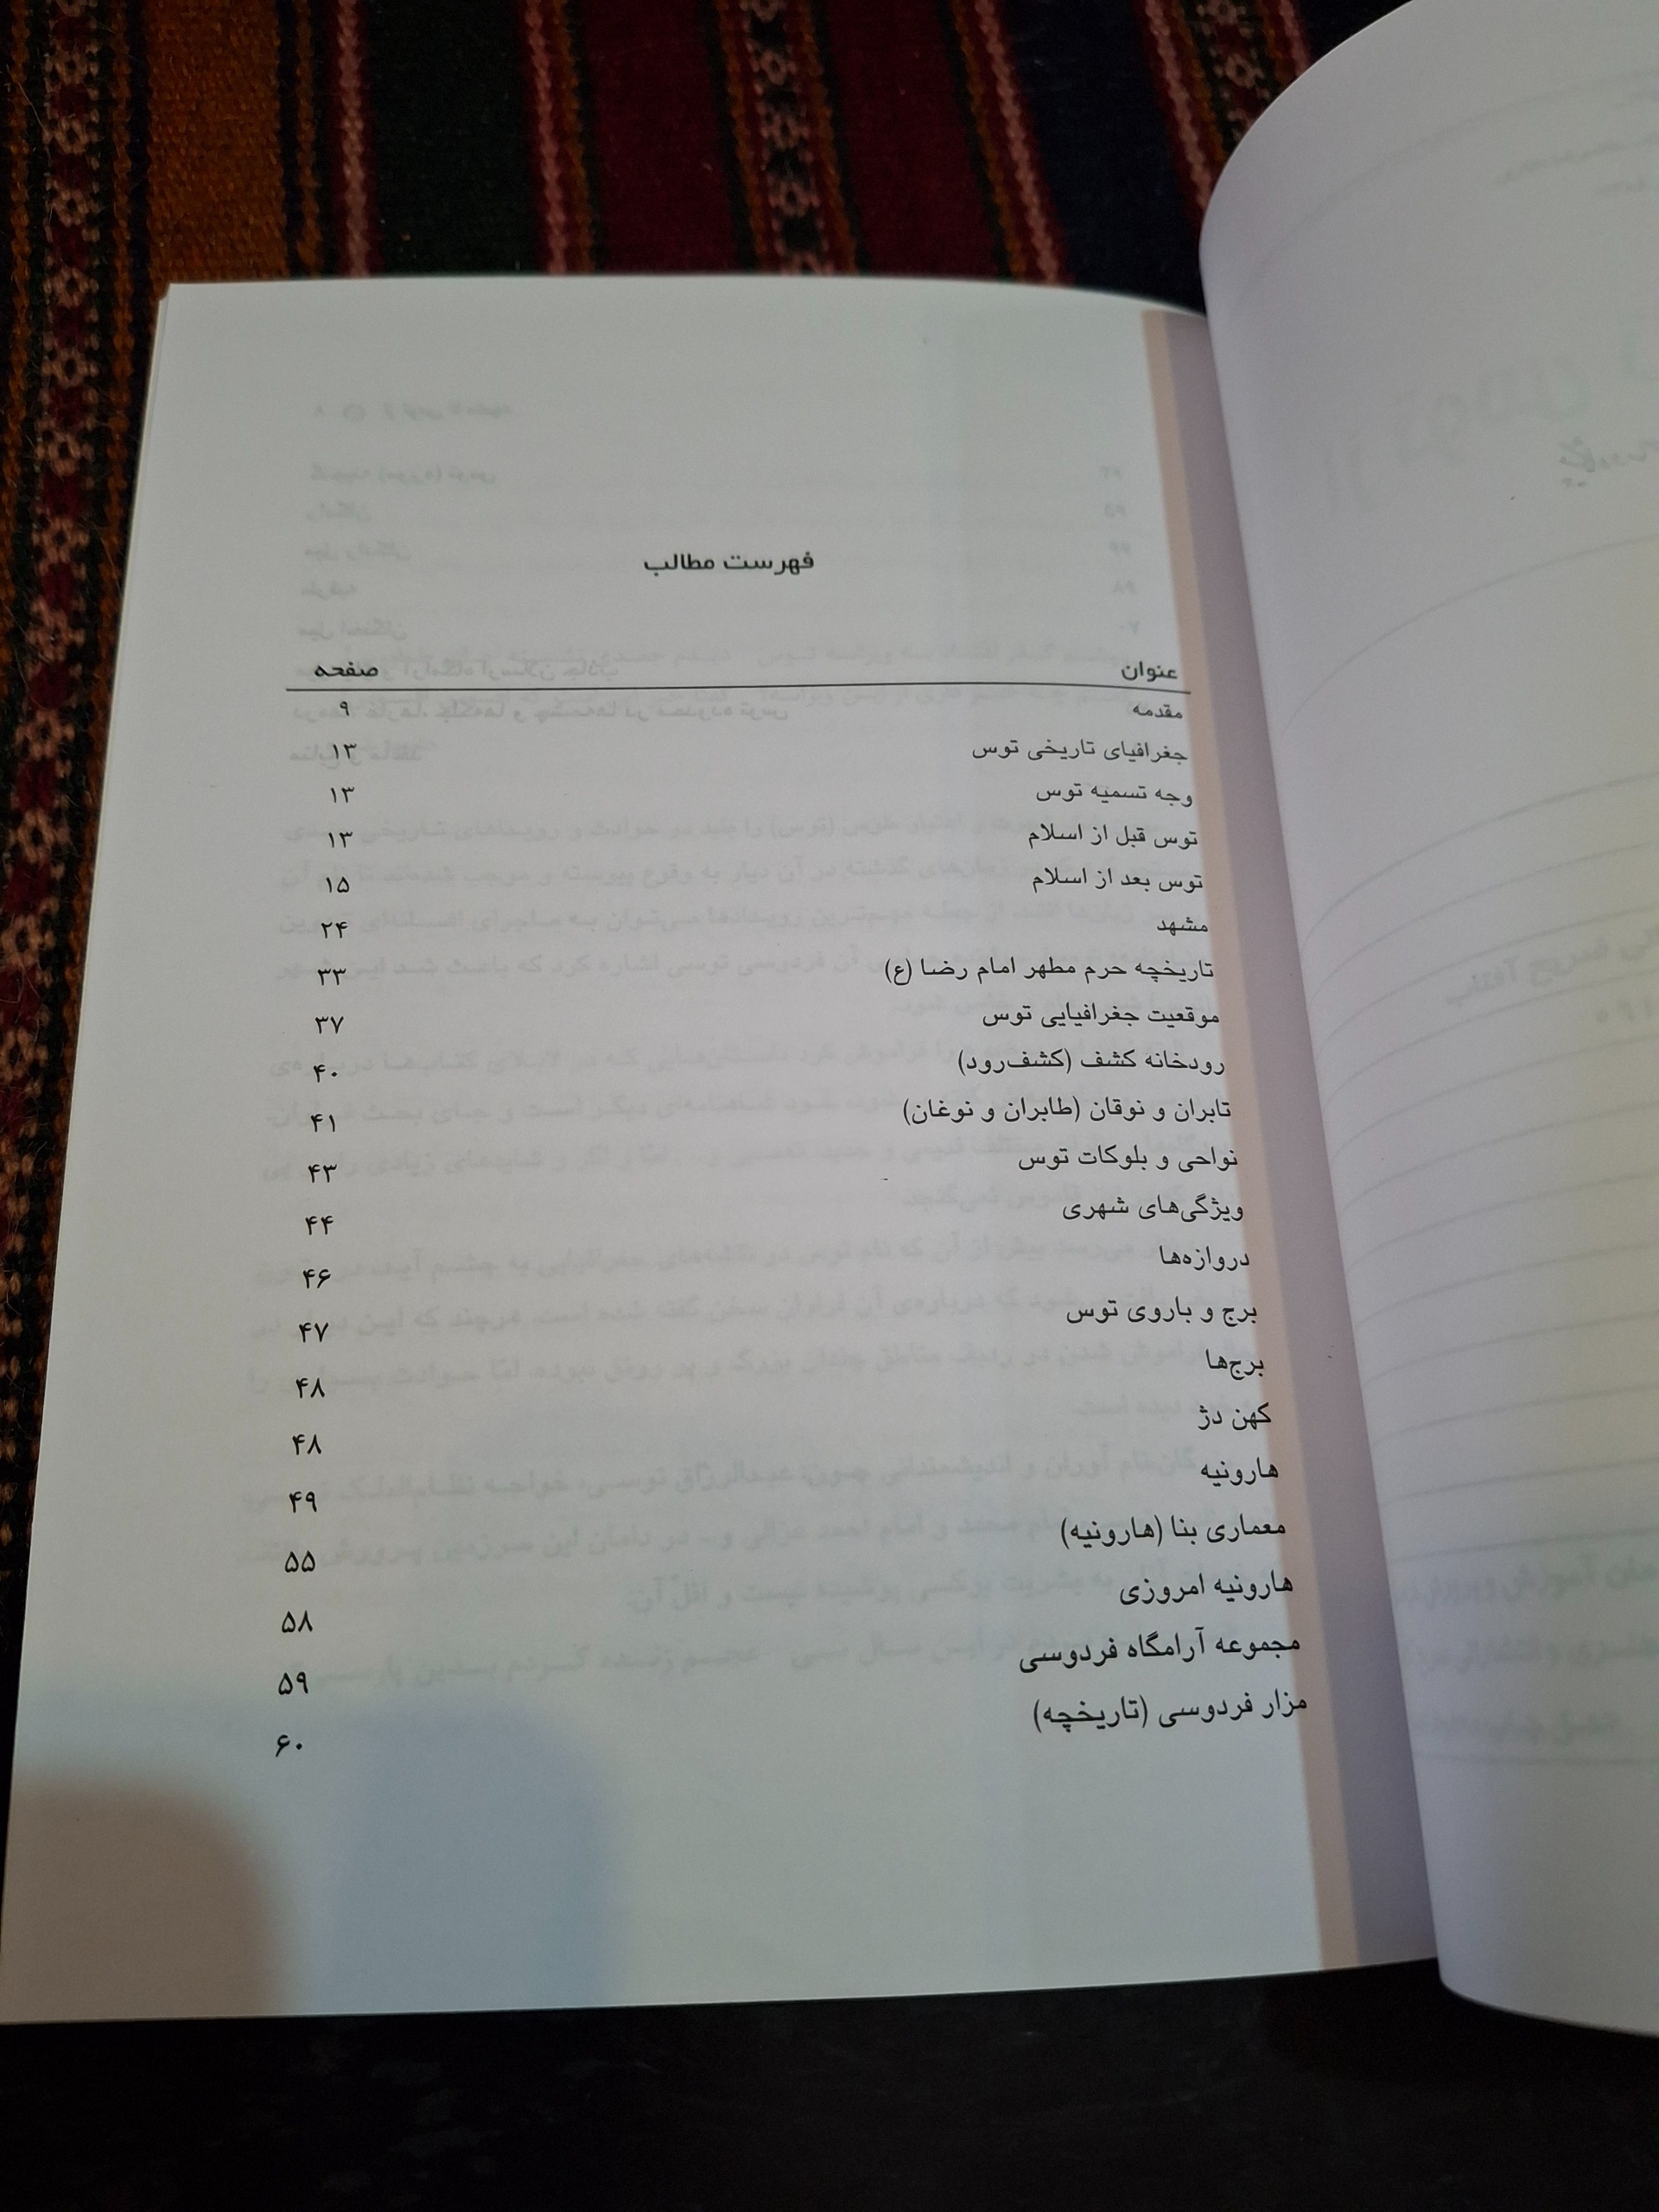 فهرست مطالب
عنوان صفحه
مقدمه ۹
جغرافیای تاریخی توس ۱۳
وجه تسمیه توس ۱۳
توس قبل از اسلام ۱۳
توس بعد از اسلام ۱۵
مشهد ۲۴
تاریخچه حرم مطهر امام رضا (ع) ۳۳
موقعیت جغرافیایی توس ۳۷
رودخانه کشف (کشف‌رود) ۴۰
تابران و نوقان (طابران و نوغان) ۴۱
نواحی و بلوکات توس ۴۳
ویژگی‌های شهری ۴۴
دروازه‌ها ۴۶
برج و باروی توس ۴۷
برج‌ها ۴۸
کهن دژ ۴۸
هارونیه ۴۹
معماری بنا (هارونیه) ۵۵
هارونیه امروزی ۵۸
مجموعه آرامگاه فردوسی ۵۹
مزار فردوسی (تاریخچه) ۶۰